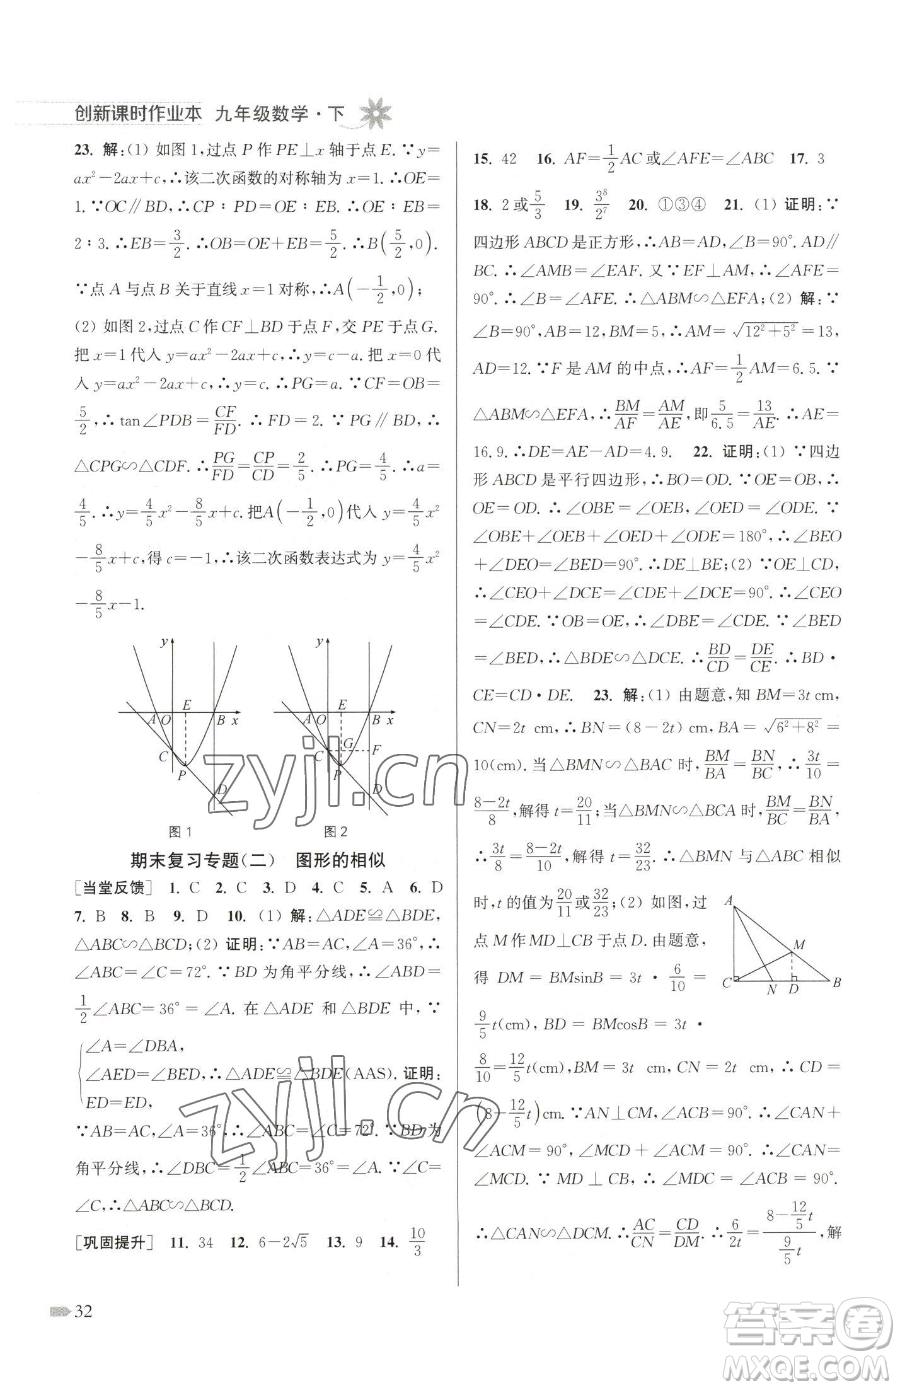 创新课时作业本 九年级数学·下
23. 解:(1) 如图 1,过点 P 作 PE⊥x 轴于点 E. ∵y=
ax²-2ax+c,∴该二次函数的对称轴为 x=1. ∴OE=
1. ∵OC∥BD,∴CP∶PD=OE∶EB. ∴OE∶EB=
2∶3. ∴EB=3/2. ∴OB=OE+EB=5/2. ∴B(5/2,0).
∵点 A 与点 B 关于直线 x=1 对称,∴A(-1/2,0);
(2) 如图 2,过点 C 作 CF⊥BD 于点 F,交 PE 于点 G.
把 x=1 代入 y=ax²-2ax+c,∴y=c-a. 把 x=0 代
入 y=ax²-2ax+c,∴y=c. ∴PG=a. ∵CF=OB=
5/2,∴tan∠PDB=CF/FD. ∴FD=2. ∵PG∥BD,∴
△CPG∽△CDF. ∴PG/FD=CP/CD=2/5. ∴PG=4/5. ∴a=
4/5. ∴y=4/5x²-8/5x+c. 把A(-1/2,0)代入 y=4/5x²-
8/5x+c,得 c=-1,∴该二次函数表达式为 y=4/5x²
-8/5x-1.
y
A O E B x
C
P
D
图 1
y
A O E B x
C G F
P
D
图 2
期末复习专题(二) 图形的相似
[当堂反馈] 1. C 2. C 3. D 4. C 5. A 6. D
7. B 8. B 9. D 10. (1) 解:△ADE≌△BDE,
△ABC∽△BCD;(2) 证明:∵AB=AC,∠A=36°,∴
∠ABC=∠C=72°. ∵BD 为角平分线,∴∠DBA=
1/2∠ABC=36°=∠A. 在 △ADE 和 △BDE 中,∵
{∠A=∠DBA,
∠AED=∠BED,∴△ADE≌△BDE(AAS). 证明:
ED=ED,
∵AB=AC,∠A=36°,∴∠ABC=∠C=72°. ∵BD 为
角平分线,∴∠DBC=1/2∠ABC=36°=∠A. ∵∠C=
∠C,∴△ABC∽△BCD.
[巩固提升] 11. 34 12. 6-2√5 13. 9 14. 10/3
32
15. 42 16. AF=1/2AC或∠AFE=∠ABC 17. 3
18. 2或5/3 19. 3⁸/2⁷ 20. ①③④ 21. (1) 证明:∵
四边形 ABCD 是正方形,∴AB=AD,∠B=90°. AD∥
BC. ∴∠AMB=∠EAF. 又∵EF⊥AM,∴∠AFE=
90°. ∴∠B=∠AFE. ∴△ABM∽△EFA;(2) 解:∵
∠B=90°,AB=12,BM=5,∴AM=√12²+5²=13,
AD=12. ∵F 是 AM 的中点,∴AF=1/2AM=6.5. ∵
△ABM∽△EFA,∴BM/AF=AM/AE,即5/6.5=13/AE. ∴AE=
16.9. ∴DE=AE-AD=4.9. 22. 证明:(1) ∵四边
形 ABCD 是平行四边形,∴BO=OD. ∵OE=OB,∴
OE=OD. ∴∠OBE=∠OEB,∠OED=∠ODE. ∵
∠OBE+∠OEB+∠OED+∠ODE=180°,∴∠BEO
+∠DEO=∠BED=90°. ∴DE⊥BE;(2) ∵OE⊥CD,
∴∠CEO+∠DCE=∠CDE+∠DCE=90°. ∴∠CEO
=∠CDE. ∵OB=OE,∴∠DBE=∠CDE. ∵∠BED
=∠BED,∴△BDE∽△DCE. ∴BD/CD=DE/CE. ∴BD·
CE=CD·DE. 23. 解:(1) 由题意,知 BM=3t cm,
CN=2t cm,∴BN=(8-2t)cm,BA=√6²+8²=
10(cm). 当△BMN∽△BAC 时,BM/BA=BN/BC,∴3t/10=
8-2t/8,解得 t=20/11;当△BMN∽△BCA 时,BM/BC=BN/BA,
∴3t/8=8-2t/10,解得 t=32/23. ∴△BMN 与△ABC 相似
时,t 的值为20/11或32/23;(2) 如图,过
点 M 作 MD⊥CB 于点 D. 由题意,
得 DM=BMsinB=3t·6/10=
9/5t(cm),BD=BMcosB=3t·
8/10=12/5t(cm),BM=3t cm,CN=2t cm,∴CD=
(8-12/5t)cm. ∵AN⊥CM,∠ACB=90°,∴∠CAN+
∠ACM=90°,∠MCD+∠ACM=90°. ∴∠CAN=
∠MCD. ∵MD⊥CB,∴∠MDC=∠ACB=90°.
∴△CAN∽△DCM. ∴AC/CN=CD/DM. ∴6/2t=8-12/5t/9/5t,解
A
M
C N D B
zyjl.cn
zyjl.cn
答案圈
MXQE.COM